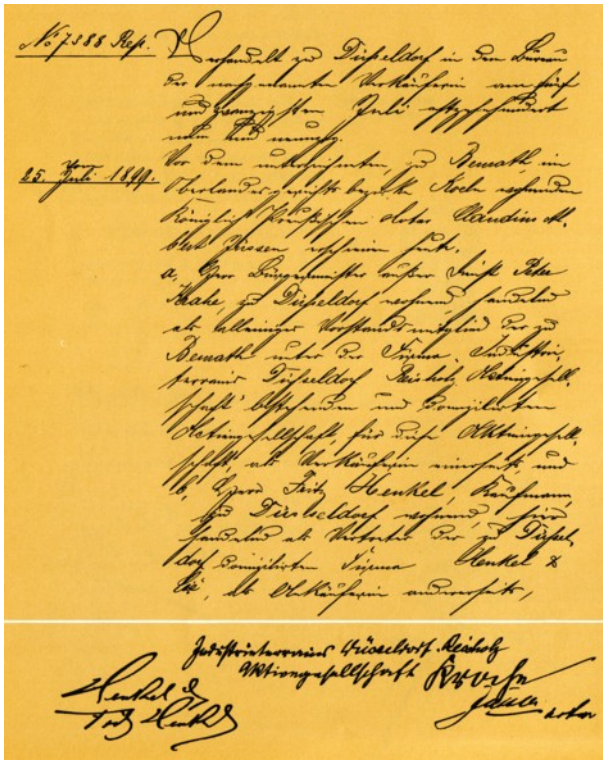 No 7388 Rep.
Verhandelt zu Düsseldorf in dem Büreau
der nachgenannten Verkäuferin am fünf
und zwanzigsten Juli achtzehnhundert
neun und neunzig.
vom
25. Juli 1899.
Vor dem unterzeichneten, zu Benrath, im
Oberlandesgerichtsbezirke Koeln wohnenden
Königlich Preußischen Notar Claudius Al-
bert Jüssen erschienen heute.
a, Herr Bürgermeister außer Dienst Peter
zu Düsseldorf wohnend, handelnd
als alleiniges Vorstandsmitglied der zu
Benrath unter der Firma „Industrie-
terrains Düsseldorf Reisholz Actiengesell-
schaft“ bestehenden und domizilirten
Actiengesellschaft, für diese Aktiengesell-
schaft, als Verkäuferin einerseits, und
b, Herr Fritz Henkel, Kaufmann,
zu Düsseldorf wohnend, hier
handelnd als Vertreter der zu Düssel-
dorf domizilirten Firma Henkel &
Cie, als Ankäuferin andererseits,
Industrieterrains Düsseldorf-Reisholz
Aktiengesellschaft
Fritz Henkel
Notar